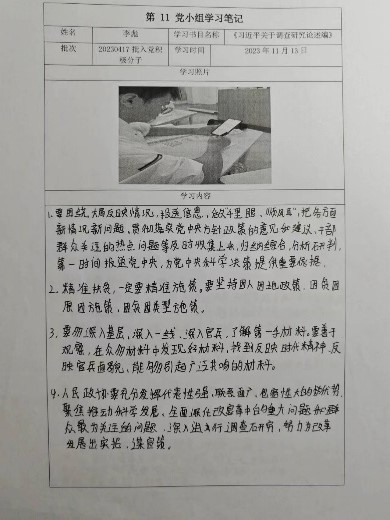 第 11 党小组学习笔记
姓名 李彪 学习书目名称 《习近平关于调查研究论述摘编》
批次 20230417批入党积极分子 学习时间 2023年11月13日
学习照片
学习内容
1.要围绕大局反映情况,报送信息,当好“千里眼、顺风耳”,把各方面
新情况新问题,贯彻落实党中央方针政策的意见和建议,干部
群众关注的热点问题等及时收集上来,归纳综合,分析研判,
第一时间报送党中央,为党中央科学决策提供重要依据。
2.精准扶贫,一定要精准施策。要坚持因人因地施策,因贫困
原因施策,因贫困类型施策。
3.要多深入基层,深入一线,深入官兵,了解第一手材料。要善于
观察,在众多材料中发现好材料,找到反映时代精神、反
映官兵面貌、能够引起广泛共鸣的材料。
4.人民政协要充分发挥代表性强,联系面广,包容性大的优势,
聚焦推动科学发展、全面深化改革中的重大问题和群
众最为关注的问题,深入进行调查研究,努力为改革
发展出实招、谋良策。